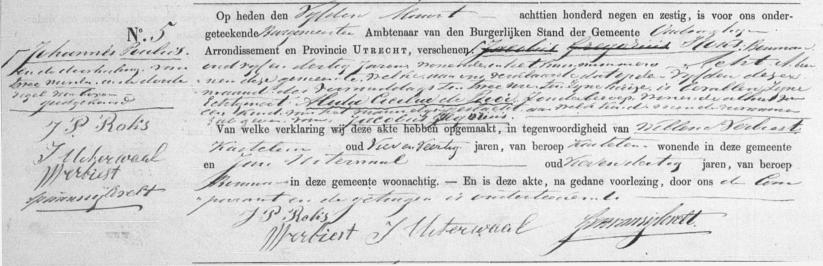 No. 5
Johannes Paulus
en de doorhaling van
twee woorden in de derde
regel van boven
goedgekeurd
J P Rolis
J Uiterwaal
W Verbiest
Op heden den Vyfden Maart achttien honderd negen en zestig, is voor ons onder-
geteekende Burgemeester Ambtenaar van den Burgerlijken Stand der Gemeente
Arrondissement en Provincie UTRECHT, verschenen, Jacobus Gregorius Bouwman
oud vyf en dertig jaren wonende in het huis nummer Acht bin-
nen deze gemeente, welke aan ons verklaarde dat op den Vyfden dezer
maand des voormiddags ten twee ure in zyne huize is bevallen zyne
Echtgenoot Alida Cecilia de Kooi zonder beroep wonende alhier
van een kind van het mannelyk geslacht aan welk kind is de voornamen
Jacobus Gregorius
Van welke verklaring wij deze akte hebben opgemaakt, in tegenwoordigheid van Willem Verbiest
Kastelein oud Vier en Veertig jaren, van beroep Kastelein wonende in deze gemeente
en Jan Uiterwaal oud Zeven en dertig jaren, van beroep
Bouwman in deze gemeente woonachtig. — En is deze akte, na gedane voorlezing, door ons de Com
parant en de getuigen is onderteekend.
J P Rolis
W Verbiest J Uiterwaal